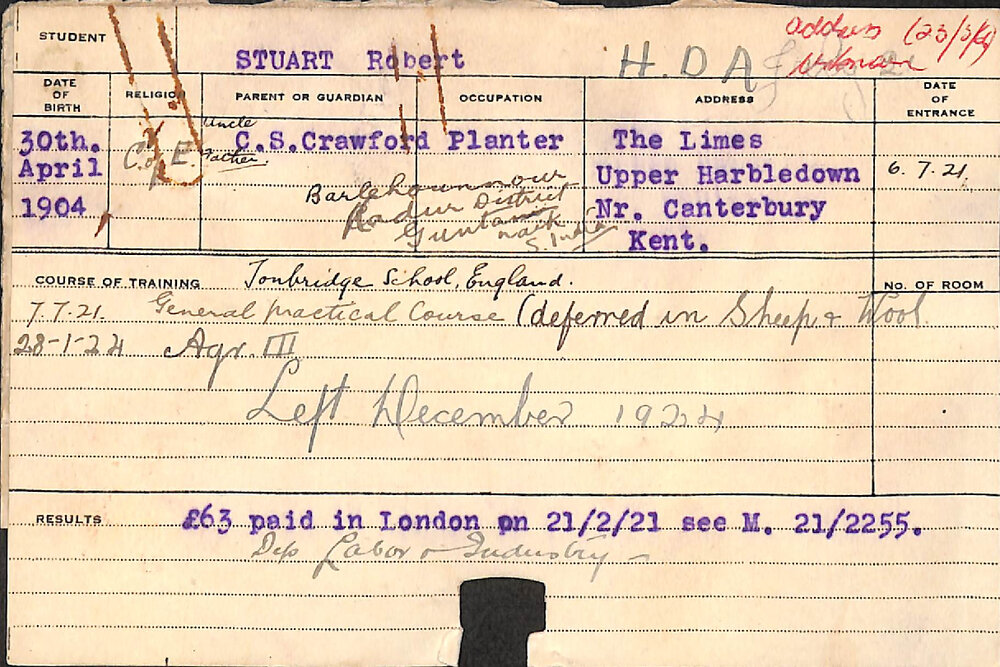 STUDENT
STUART Robert
H.D.A
address (23/3/
Unknown
DATE OF BIRTH
RELIGION
PARENT OR GUARDIAN
OCCUPATION
ADDRESS
DATE OF ENTRANCE
30th. April 1904
C of E.
Uncle
Father.
C.S.Crawford
Planter
The Limes
Upper Harbledown
Nr. Canterbury
Kent.
6.7.21.
District
S. India
COURSE OF TRAINING
Tonbridge School, England.
No. OF ROOM
7.7.21. General Practical Course (deferred in Sheep & Wool.
28-1-24 Agr. III
Left December 1924
RESULTS
£63 paid in London on 21/2/21 see M. 21/2255.
Dep Labor & Industry -